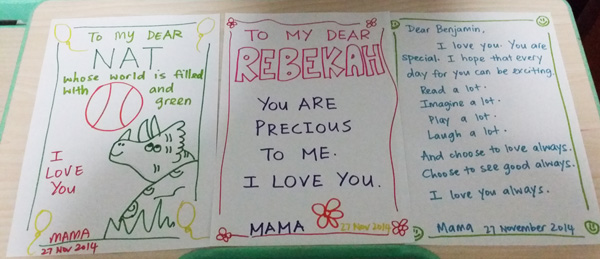 TO MY DEAR
NAT
whose world is filled
with and
green
I
LOVE
YOU
MAMA
27 Nov 2014
TO MY DEAR
REBEKAH
YOU ARE
PRECIOUS
TO ME.
I LOVE YOU.
MAMA 27 NOV 2014
Dear Benjamin,
I love you. You are
special. I hope that every
day for you can be exciting.
Read a lot.
Imagine a lot.
Play a lot.
Laugh a lot.
And choose to love always.
Choose to see good always.
I love you always.
Mama 27 November 2014